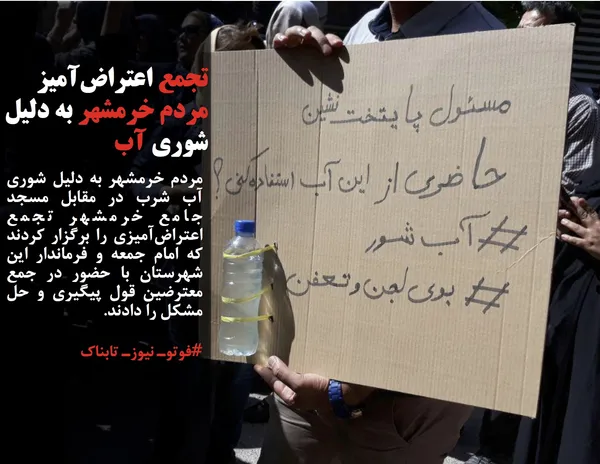 تجمع اعتراض‌آمیز
مردم خرمشهر به دلیل
شوری آب
مردم خرمشهر به دلیل شوری
آب شرب در مقابل مسجد
جامع خرمشهر تجمع
اعتراض‌آمیزی را برگزار کردند
که امام جمعه و فرماندار این
شهرستان با حضور در جمع
معترضین قول پیگیری و حل
مشکل را دادند.
#فوتوـ نیوزـ تابناک
مسئول پایتخت نشین
حاضری از این آب استفاده کنی؟
#آب شور
#بوی لجن و تعفن